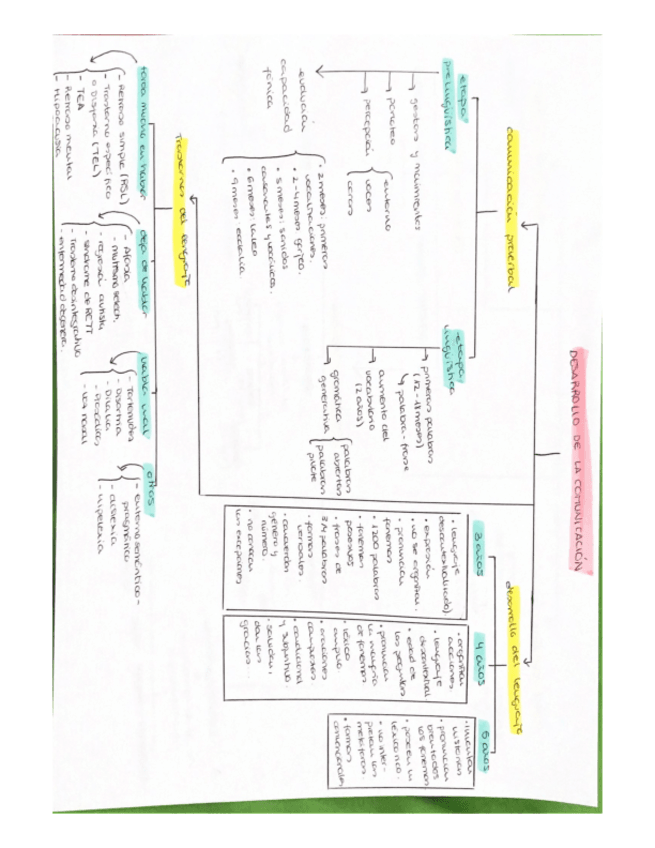 DESARROLLO DE LA COMUNICACIÓN
comunicación preverbal
etapa
prelingüística
→ gestos y movimientos
→ parloteo
→ percepción
entorno
voces
caras
evolución
capacidad
fónica
• 2 meses: primeras
vocalizaciones.
• 2-4 meses: grito.
• 5 meses: sonidos
consonantes y vocálicos.
• 6 meses: laleo
• 9 meses: ecolalia.
etapa
lingüística
primeras palabras
(12-18 meses)
↳ palabra-frase
aumento del
vocabulario
(2 años)
gramática
generativa
palabras
abiertas
palabras
pivote
desarrollo del lenguaje
3 años
• lenguaje
descontextualizado)
• expresión
• no se organizan.
• pronuncian
fonemas
• 1200 palabras
• fonemas
posesivos
• frases de
3/4 palabras
• formas
verbales.
• concuerdan
género y
número.
• no conocen
las excepciones
4 años
• organizan
acciones.
• lenguaje
descontextual
• edad de
las preguntas
• pronuncian
la mayoría
de fonemas.
• léxico
amplio.
• oraciones
compuestas.
• condicional
y subjuntivo.
• saludan,
dan las
gracias...
5 años
• inventan
historias
• pronuncian
todos
los fonemas.
• poseen un
léxico rico.
• no inter-
pretan las
metáforas
• formas
convencionales
Trastornos del lenguaje
tarda mucho en hablar
- Retraso simple (RSL)
- Trastorno específico
o Disfasia (TEL)
- TEA
- Retraso mental
- Hipoacusia
deja de hablar
- Afasia
- mutismo select.
- regresión autista
- síndrome de
- Trastorno desintegrativo
- enfermedad degenera.
habla mal
- Tartamudez
- Disartria
- Dislalia
- Aprosodias
- voz nasal
otros
- entorno semántico-
pragmático
- dislexia
- hiperlexia